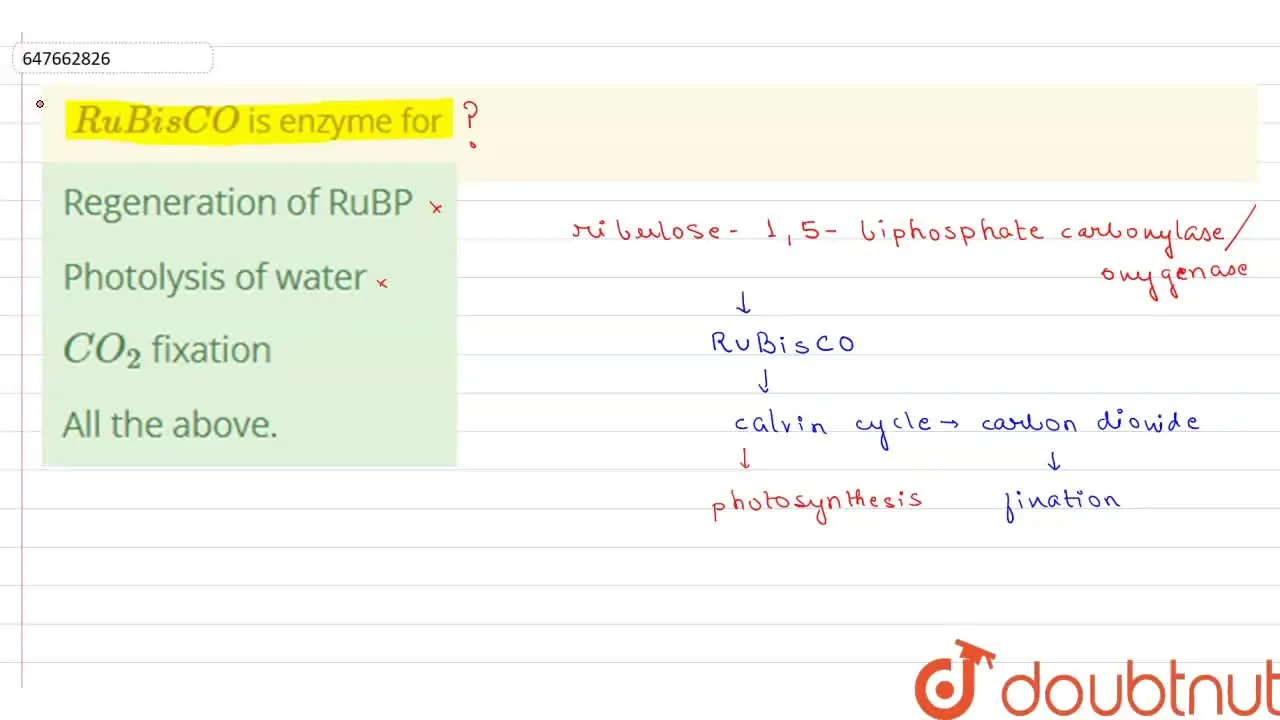 647662826
RuBisCO is enzyme for ?
Regeneration of RuBP ×
Photolysis of water ×
CO₂ fixation
All the above.
ribulose- 1,5- biphosphate carboxylase/
oxygenase
↓
RuBisCO
↓
calvin cycle → carbon dioxide
↓ ↓
photosynthesis fixation
doubtnut